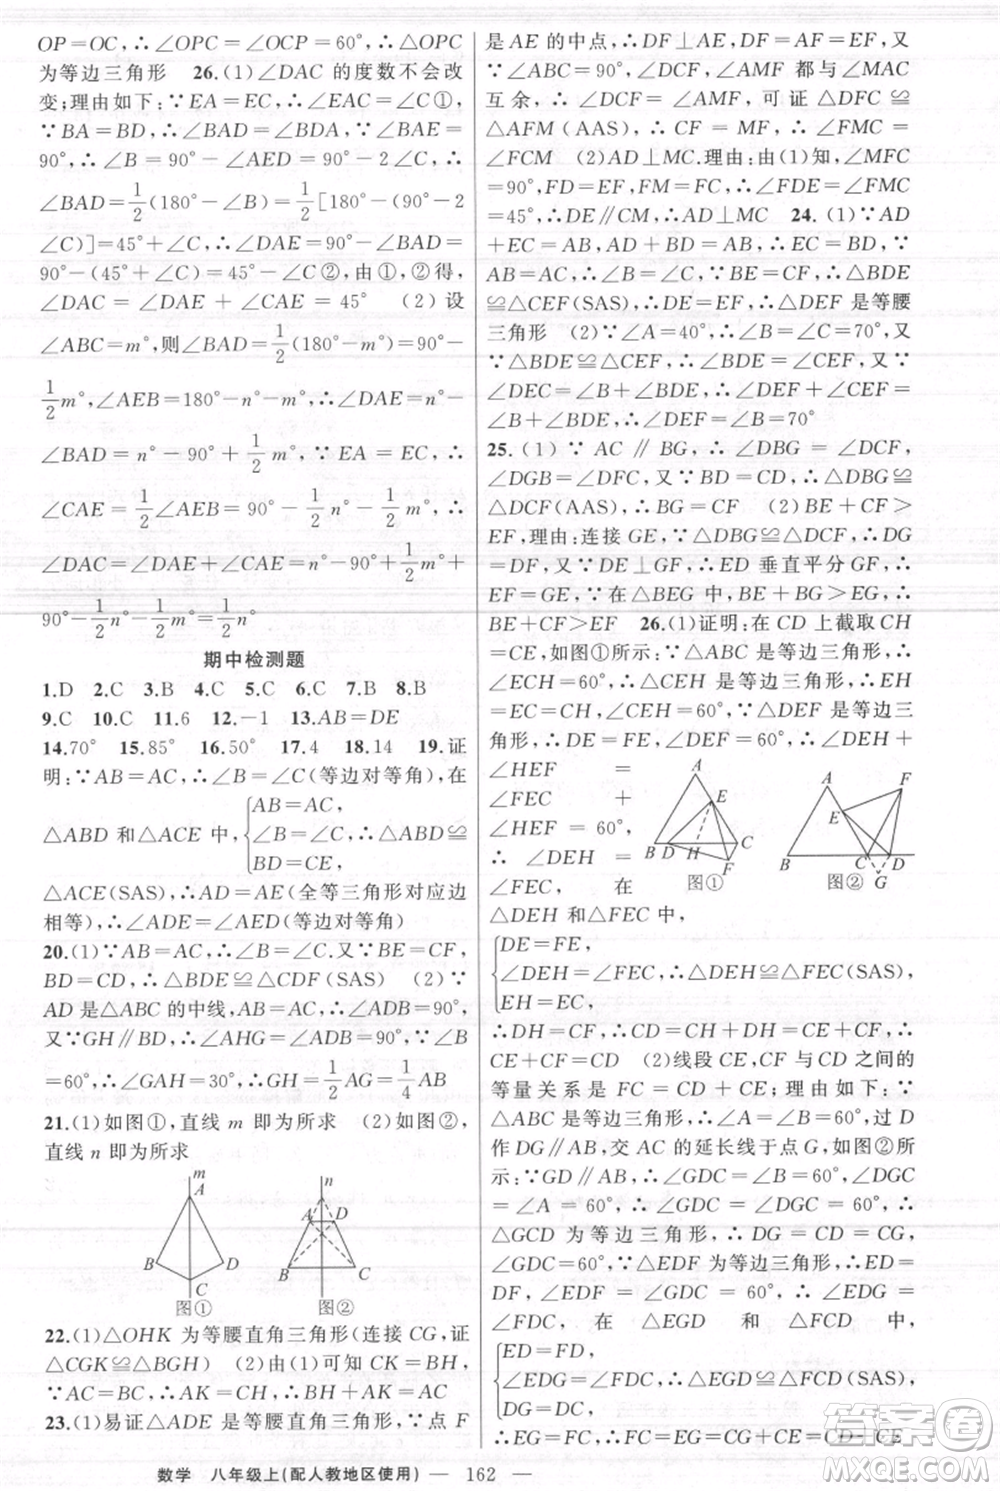 OP=OC,∴∠OPC=∠OCP=60°,∴△OPC
为等边三角形　26.(1)∠DAC 的度数不会改
变;理由如下:∵EA=EC,∴∠EAC=∠C①,
∵BA=BD,∴∠BAD=∠BDA,∵∠BAE=
90°,∴∠B=90°-∠AED=90°-2∠C,∴
∠BAD=1/2(180°-∠B)=1/2[180°-(90°-2
∠C)]=45°+∠C,∴∠DAE=90°-∠BAD=
90°-(45°+∠C)=45°-∠C②,由①,②得,
∠DAC=∠DAE+∠CAE=45°　(2)设
∠ABC=m°,则∠BAD=1/2(180°-m°)=90°-
1/2m°,∠AEB=180°-n°-m°,∴∠DAE=n°-
∠BAD=n°-90°+1/2m°,∵EA=EC,∴
∠CAE=1/2∠AEB=90°-1/2n°-1/2m°,∴
∠DAC=∠DAE+∠CAE=n°-90°+1/2m°+
90°-1/2n°-1/2m°=1/2n°
期中检测题
1.D　2.C　3.B　4.C　5.C　6.C　7.B　8.B
9.C　10.C　11.6　12.-1　13.AB=DE
14.70°　15.85°　16.50°　17.4　18.14　19.证
明:∵AB=AC,∴∠B=∠C(等边对等角),在
△ABD 和△ACE 中,{AB=AC,
∠B=∠C,∴△ABD≌
BD=CE,
△ACE(SAS),∴AD=AE(全等三角形对应边
相等),∴∠ADE=∠AED(等边对等角)
20.(1)∵AB=AC,∴∠B=∠C.又∵BE=CF,
BD=CD,∴△BDE≌△CDF(SAS)　(2)∵
AD 是△ABC 的中线,AB=AC,∴∠ADB=90°,
又∵GH∥BD,∴∠AHG=∠ADB=90°,∵∠B
=60°,∴∠GAH=30°,∴GH=1/2AG=1/4AB
21.(1)如图①,直线 m 即为所求　(2)如图②,
直线 n 即为所求
m
A
B
D
C
图①
n
A
D
B
C
图②
22.(1)△OHK 为等腰直角三角形(连接 CG,证
△CGK≌△BGH)　(2)由(1)可知 CK=BH,
∵AC=BC,∴AK=CH,∴AK=CH=BH
23.(1)易证△ADE 是等腰直角三角形,∵点 F
是 AE 的中点,∴DF⊥AE,DF=AF=EF,又
∵∠ABC=90°,∠DCF,∠AMF 都与∠MAC
互余,∴∠DCF=∠AMF,可证△DFC≌
△AFM(AAS),∴CF=MF,∴∠FMC=
∠FCM　(2)AD⊥MC.理由:由(1)知,∠MFC
=90°,FD=EF,FM=FC,∴∠FDE=∠FMC=
45°,∴DE∥CM,∴AD⊥MC　24.(1)∵AD
+EC=AB,∴BD=EC,又∵BE=CF,∵
AB=AC,∴∠B=∠C,∴△BDE
≌△CEF(SAS),∴DE=EF,∴△DEF 是等腰
三角形　(2)∵∠A=40°,∴∠B=∠C=70°,又
∵△BDE≌△CEF,∴∠BDE=∠CEF,又∵
∠DEC=∠B+∠BDE,∴∠DEF+∠CEF=
∠B+∠BDE,∴∠DEF=∠B=70°
25.(1)∵AC∥BG,∴∠DBG=∠DCF,
∠DGB=∠DFC,又∵BD=CD,∴△DBG≌
△DCF(AAS),∴BG=CF　(2)BE+CF>
EF,理由:连接 GE,∵△DBG≌△DCF,∴DG
=DF,又∵DE⊥GF,∴ED 垂直平分 GF,∴
EF=GE,∵在△BEG 中,BE+BG>EG,∴
BE+CF>EF　26.(1)证明:在 CD 上截取 CH
=CE,如图①所示:∵△ABC 是等边三角形,∴
∠ECH=60°,∴△CEH 是等边三角形,∴EH
=EC=CH,∠CEH=60°,∵△DEF 是等边三
角形,∴DE=FE,∠DEF=60°,∴∠DEH+
∠HEF=
∠FEC+
∠HEF=60°,
∴∠DEH=
∠FEC,在
A
E
B
D
H
C
F
图①
A
F
E
B
C
D
G
图②
△DEH 和△FEC 中,
{DE=FE,
∠DEH=∠FEC,∴△DEH≌△FEC(SAS),
EH=EC,
∴DH=CF,∴CD=CH+DH=CE+CF,∴
CE+CF=CD　(2)线段 CE,CF 与 CD 之间的
等量关系是 FC=CD+CE;理由如下:∵
△ABC 是等边三角形,∴∠A=∠B=60°,过 D
作 DG∥AB,交 AC 的延长线于点 G,如图②所
示:∵GD∥AB,∴∠GDC=∠B=60°,∠DGC
=∠A=60°,∴∠GDC=∠DGC=60°,∴
△GCD 为等边三角形,∴DG=CD=CG,
∠GDC=60°,∵△EDF 为等边三角形,∴ED=
DF,∠EDF=∠GDC=60°,∴∠EDG=
∠FDC,在△EGD 和△FCD 中,
{ED=FD,
∠EDG=∠FDC,∴△EGD≌△FCD(SAS),
DG=DC,
∴EG=FC,∴FC=EG=CG+CE=CD+CE
数学　八年级上(配人教地区使用)　— 162 —
答案圈
MXQE.COM